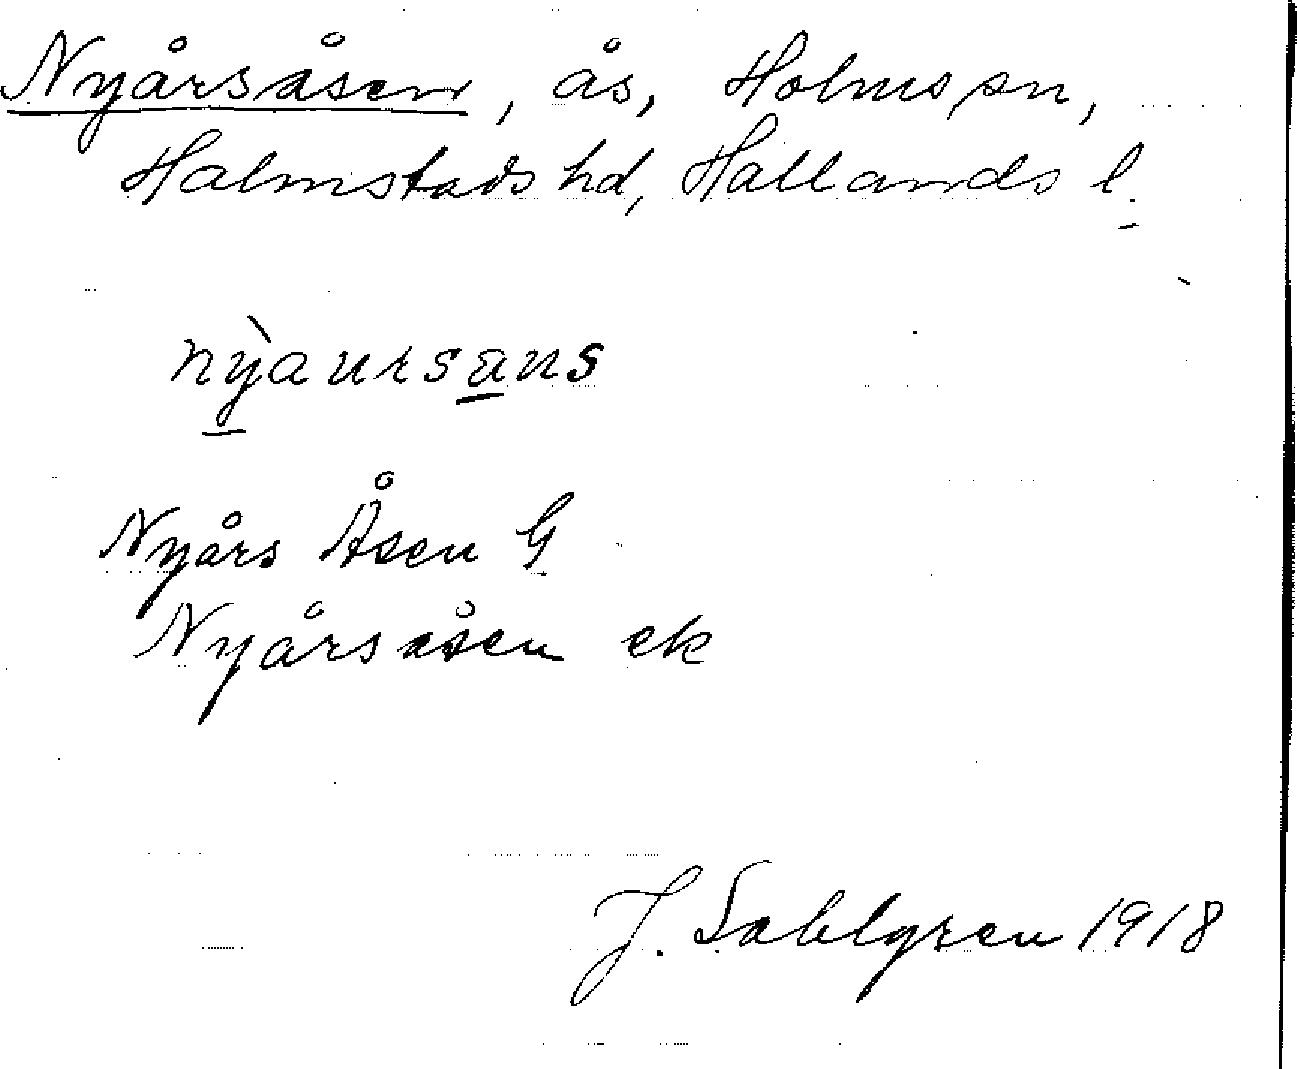 Nyårsåsen, ås, Holms sn,
Halmstads hd, Hallands l.
nỳaursans
Nyårs Åsen G
Nyårsåsen ek
J. Sahlgren 1918